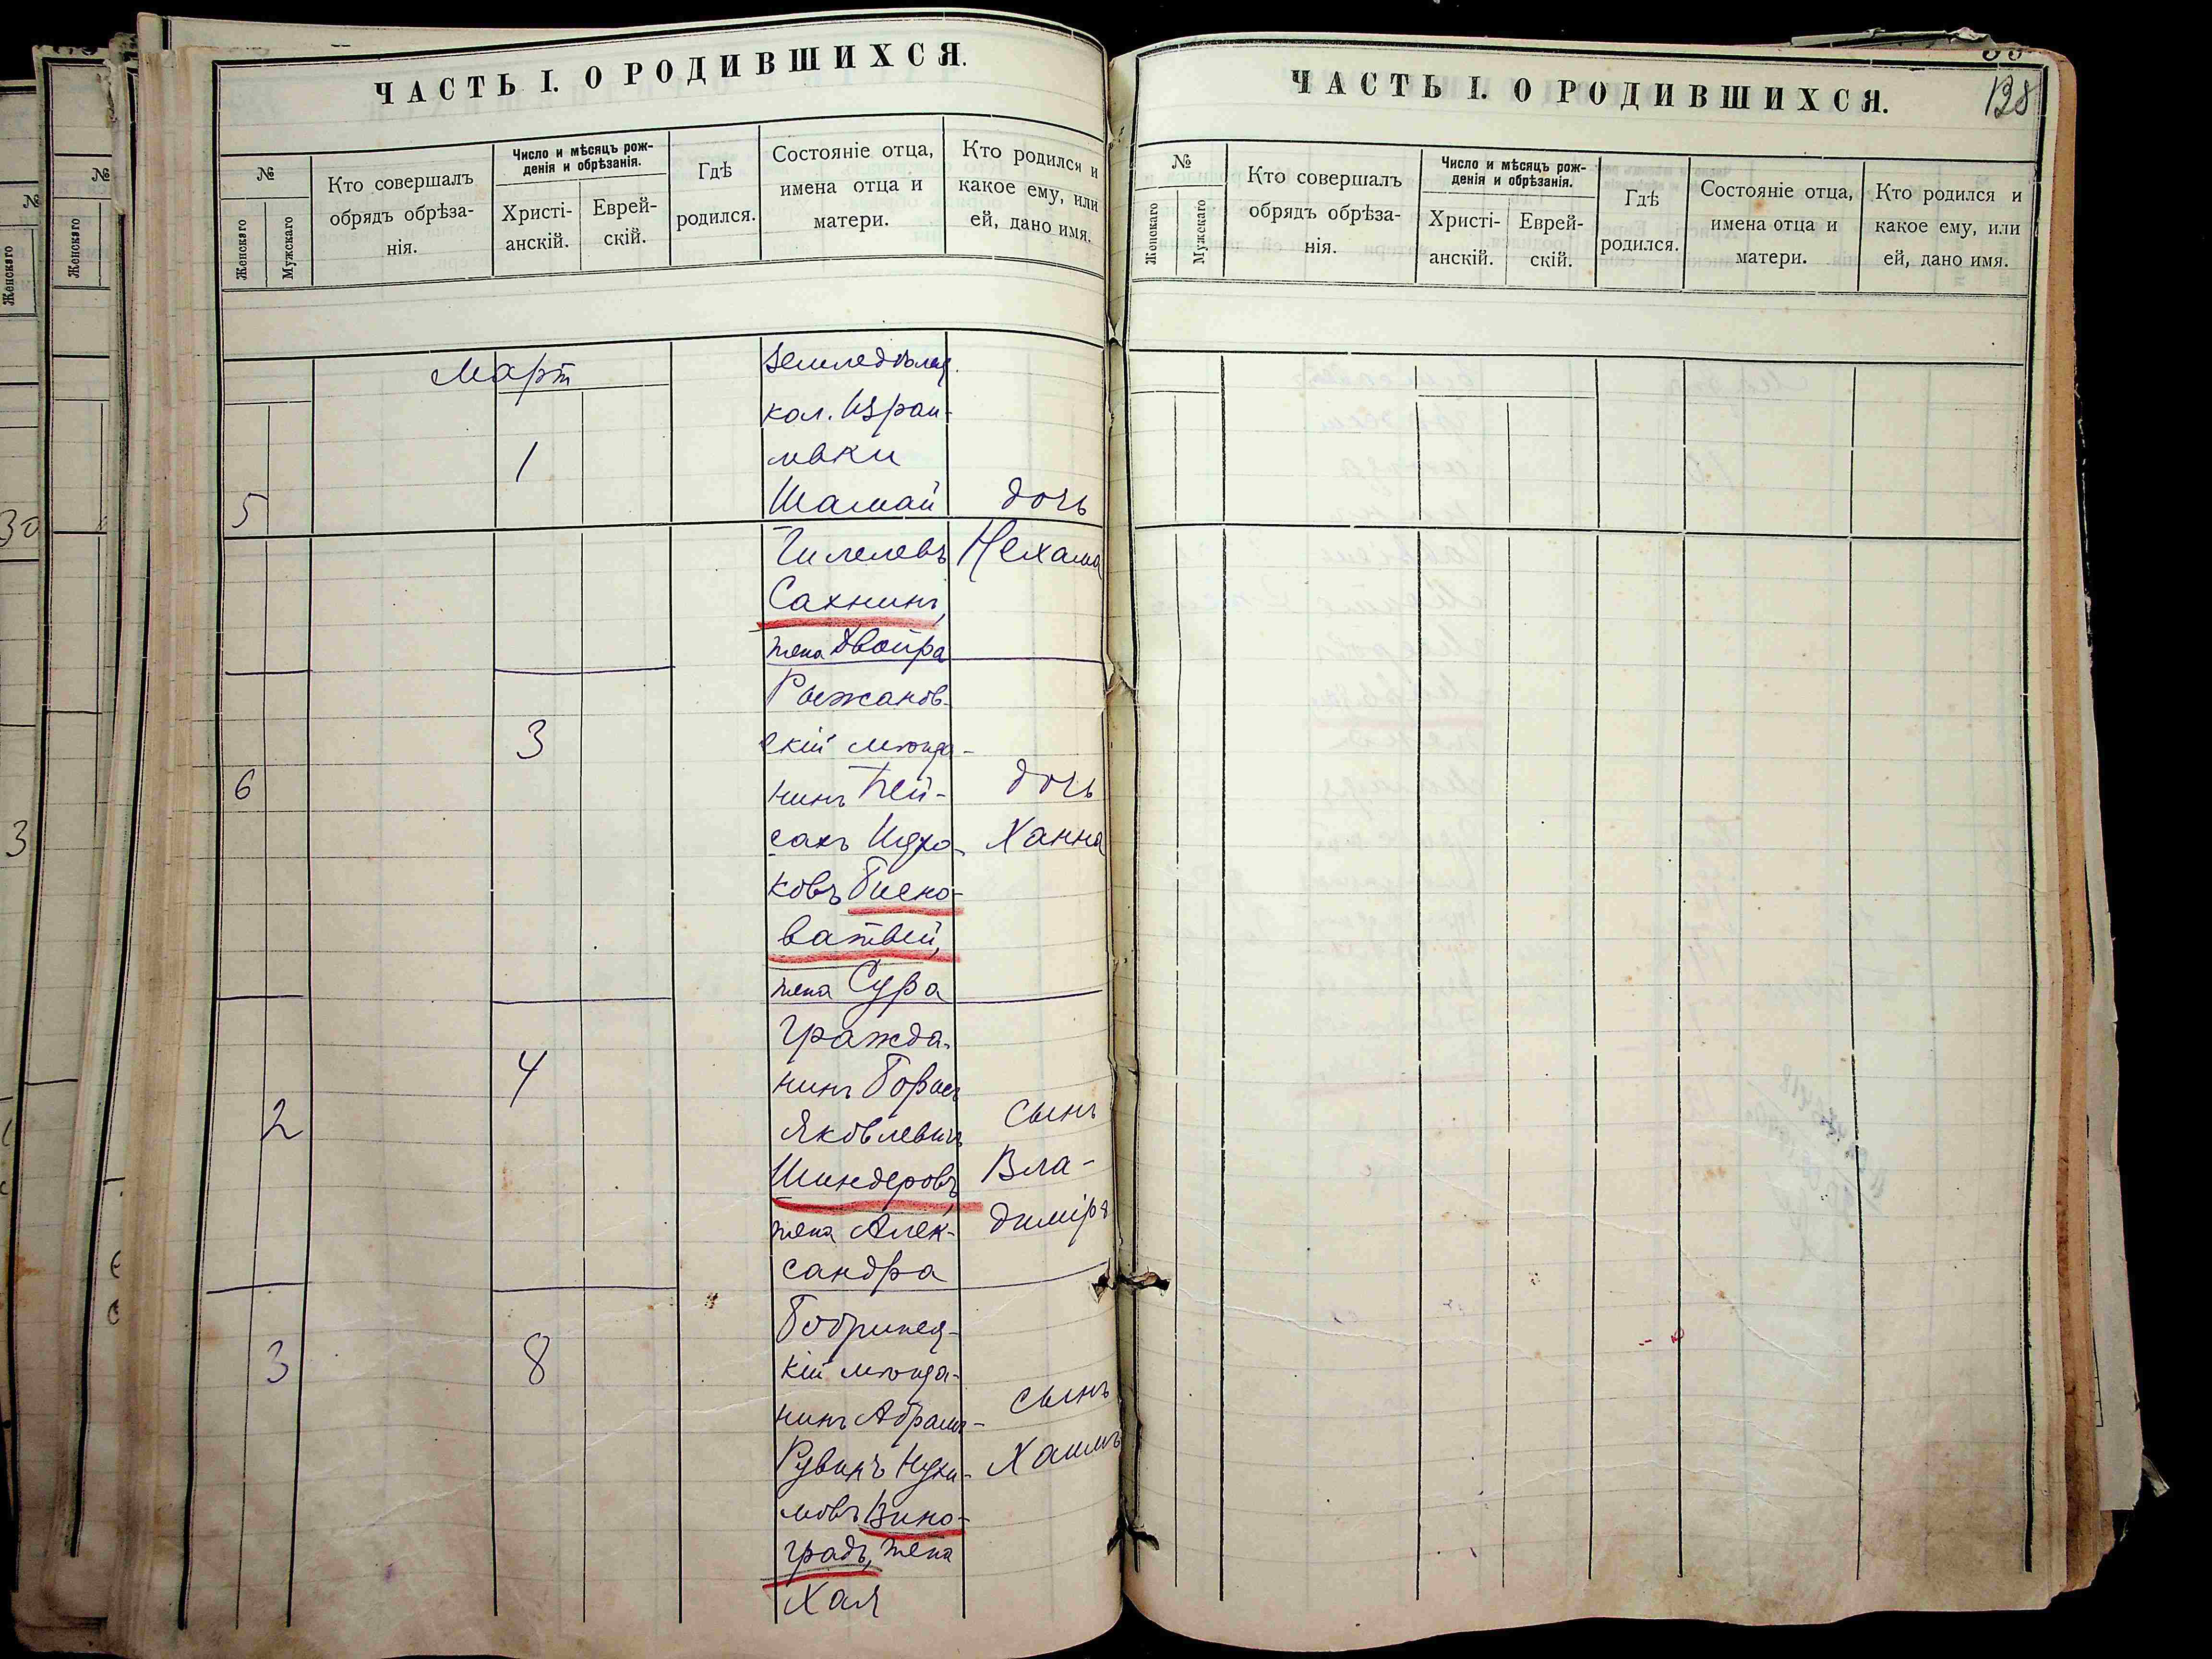 ЧАСТЬ I. О РОДИВШИХСЯ.
№
Женскаго
Мужскаго
Кто совершалъ
обрядъ обрѣза-
нія.
Число и мѣсяцъ рож-
денія и обрѣзанія.
Христі-
анскій.
Еврей-
скій.
Гдѣ
родился.
Состояніе отца,
имена отца и
матери.
Кто родился и
какое ему, или
ей, дано имя.
Март
5
1
Земледѣлец
кол. Израи-
левки
Шамай
Гилелевъ
Сахнинъ,
жена Двойра
дочь
Нехама
6
3
Рыжанов-
скій мѣща-
нинъ Пей-
сахъ Ицко-
ковъ Бисно-
ватый,
жена Сура
дочь
Ханна
2
4
Гражда-
нинъ Борисъ
Яковлевичъ
Шиндеровъ,
жена Алек-
сандра
сынъ
Вла-
диміръ
3
8
Бобринец-
кій мѣща-
нинъ Абрамъ-
Рувинъ Нухи-
мовъ Вино-
градъ, жена
Хая
сынъ
Хаимъ
ЧАСТЬ I. О РОДИВШИХСЯ.
138
№
Женскаго
Мужскаго
Кто совершалъ
обрядъ обрѣза-
нія.
Число и мѣсяцъ рож-
денія и обрѣзанія.
Христі-
анскій.
Еврей-
скій.
Гдѣ
родился.
Состояніе отца,
имена отца и
матери.
Кто родился и
какое ему, или
ей, дано имя.
№
Женскаго
№
Женскаго
30
3